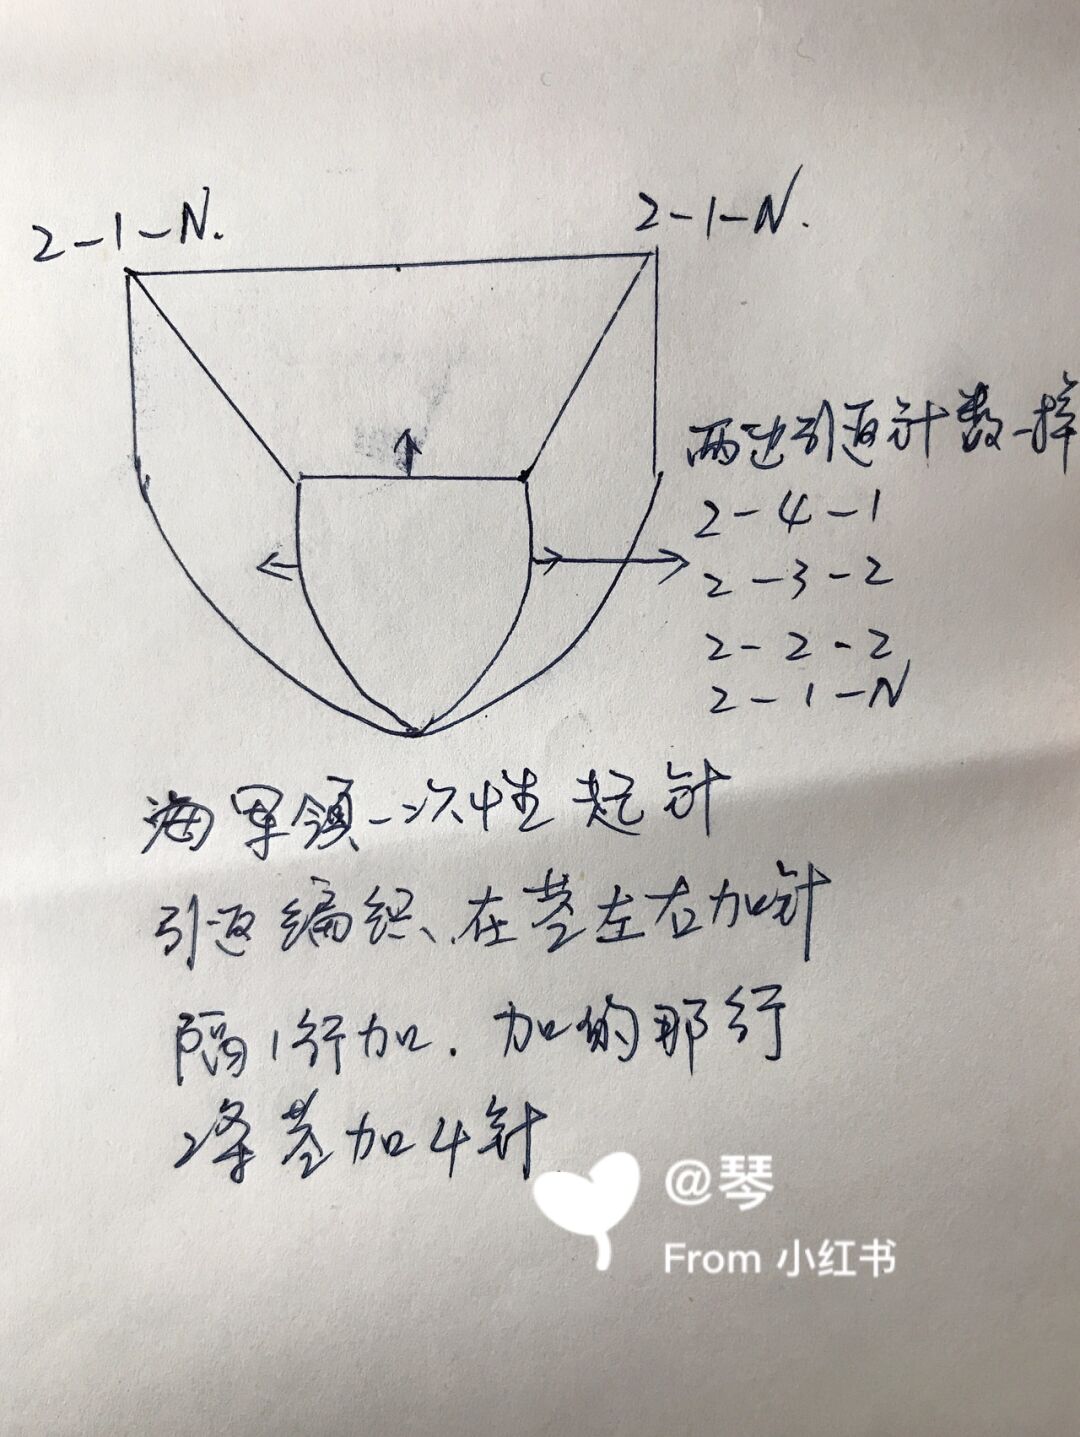 2-1-N.
2-1-N.
两边引返针数一样
2-4-1
2-3-2
2-2-2
2-1-N
海军领一次性起针
引返编织、在茎左右加针
隔1行加.加的那行
2条茎加4针
@琴
From 小红书